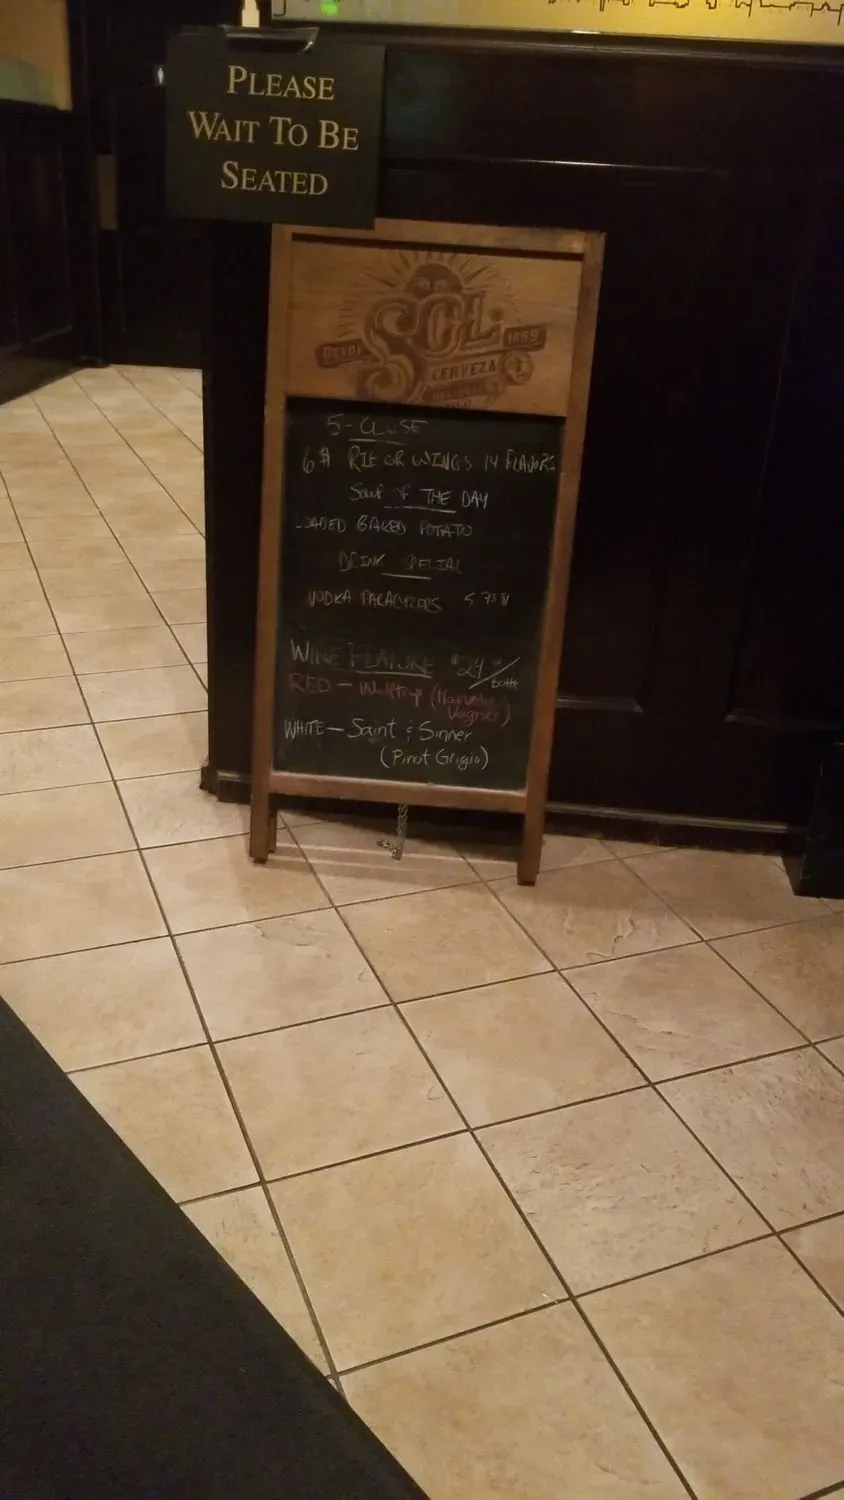 PLEASE
WAIT TO BE
SEATED
SOL
DESDE 1899
CERVEZA
5-CLOSE
6$ RIB OR WINGS 14 FLAVORS
SOUP OF THE DAY
LOADED BAKED POTATO
DRINK SPECIAL
VODKA PARALYZERS 5.75$
WINE FEATURE $24
RED -
WHITE - Saint & Sinner
(Pinot Grigio)